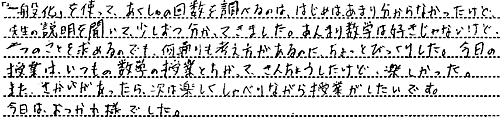 「一般化」を使って、あくしゅの回数を調べるのは、はじめはあまり分からなかったけど、
先生の説明を聞いて少しずつ分かってきました。あんまり数学は好きじゃないけど、
一つのことを求めるのでも、何通りも考え方があるのに、ちょっとびっくりした。今日の
授業は、いつもの数学の授業とちがって、きんちょうしたけど、楽しかった。
また、きかいがあったら、次は楽しくしゃべりながら授業がしたいです。
今日は、おつかれ様でした。